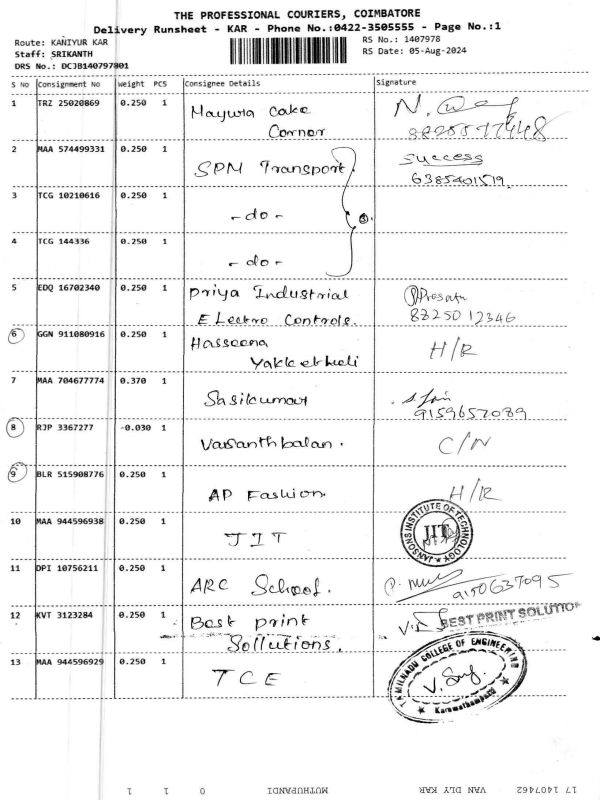 THE PROFESSIONAL COURIERS, COIMBATORE
Delivery Runsheet - KAR - Phone No.:0422-3505555 - Page No.:1
Route: KANIYUR KAR
RS No.: 1407978
Staff: SRIKANTH
RS Date: 05-Aug-2024
DRS No.: DCJB140797801
S No Consignment No Weight PCS Consignee Details Signature
1 TRZ 25020869 0.250 1 Mayura Cake
Corner
2 MAA 574499331 0.250 1 SPM Transport. success
6385401519.
3 TCG 10210616 0.250 1 - do -
③.
4 TCG 144336 0.250 1 - do -
5 EDQ 16702340 0.250 1 Priya Industrial
Electro Controls. 8825012346
6 GGN 911080916 0.250 1 Hasseena H/R
7 MAA 704677774 0.370 1 Sasikumar
9159657089
8 RJP 3367277 -0.030 1 Vasanthbalan. C/N
9 BLR 515908776 0.250 1 AP Fashion H/R
10 MAA 944596938 0.250 1 JIT
JANSONS INSTITUTE OF TECHNOLOGY
JIT
11 DPI 10756211 0.250 1 ARC School.
9150637095
12 KVT 3123284 0.250 1 Best print BEST PRINT SOLUTION
Sollutions.
13 MAA 944596929 0.250 1 TCE
TAMILNADU COLLEGE OF ENGINEERING
Karumathampatti
17 1407462 VAN DLY KAR MUTHUPANDI 0 1 1